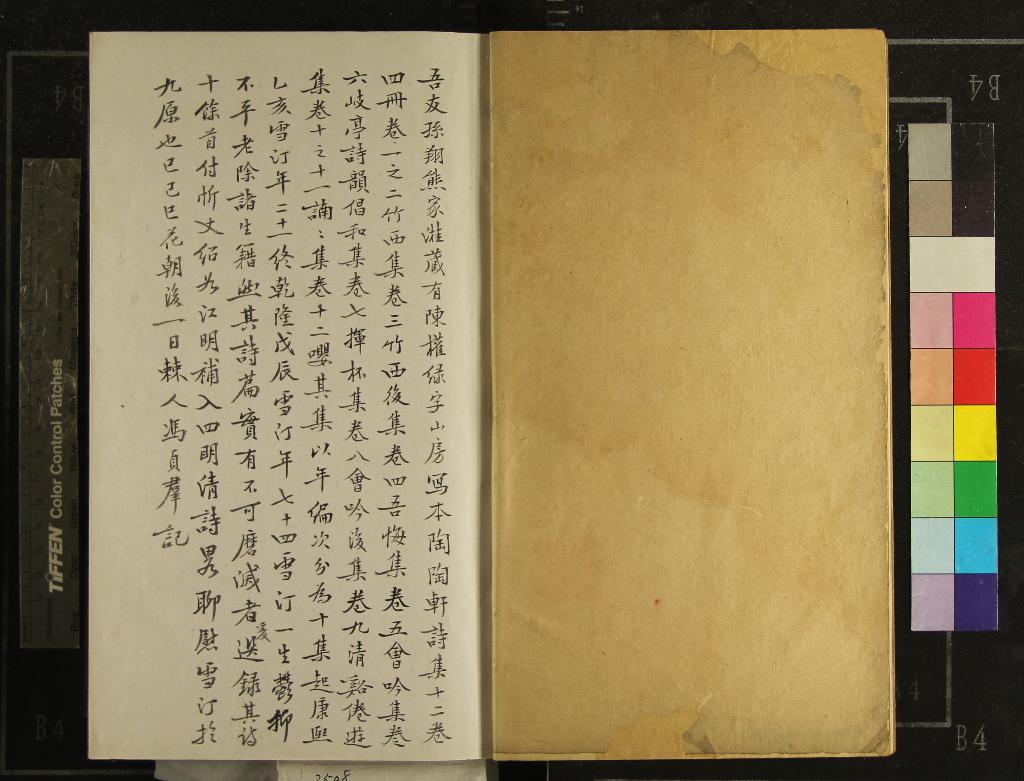 吾友孫翔熊家漄蔵有陳權緑字山房写本陶陶軒詩集十二卷
四冊卷一之二竹西集卷三竹西後集卷四吾悔集卷五會吟集卷
六岐亭詩韻倡和集卷七揮杯集卷八會吟後集卷九清谿倦遊
集卷十之十一誦〻集卷十二嚶其集以年编次分為十集起康熙
乙亥雪汀年二十一终乾隆戊辰雪汀年七十四雪汀一生鬱抑
不平老除諸生籍然其詩篇實有不可磨滅者爰選録其詩
十餘首付忻丈绍如江明補入四明清詩畧聊慰雪汀於
九原也已己巳花朝後一日棘人馮貞羣記
TIFFEN Color Control Patches
B4
B4
B4
B4
2598